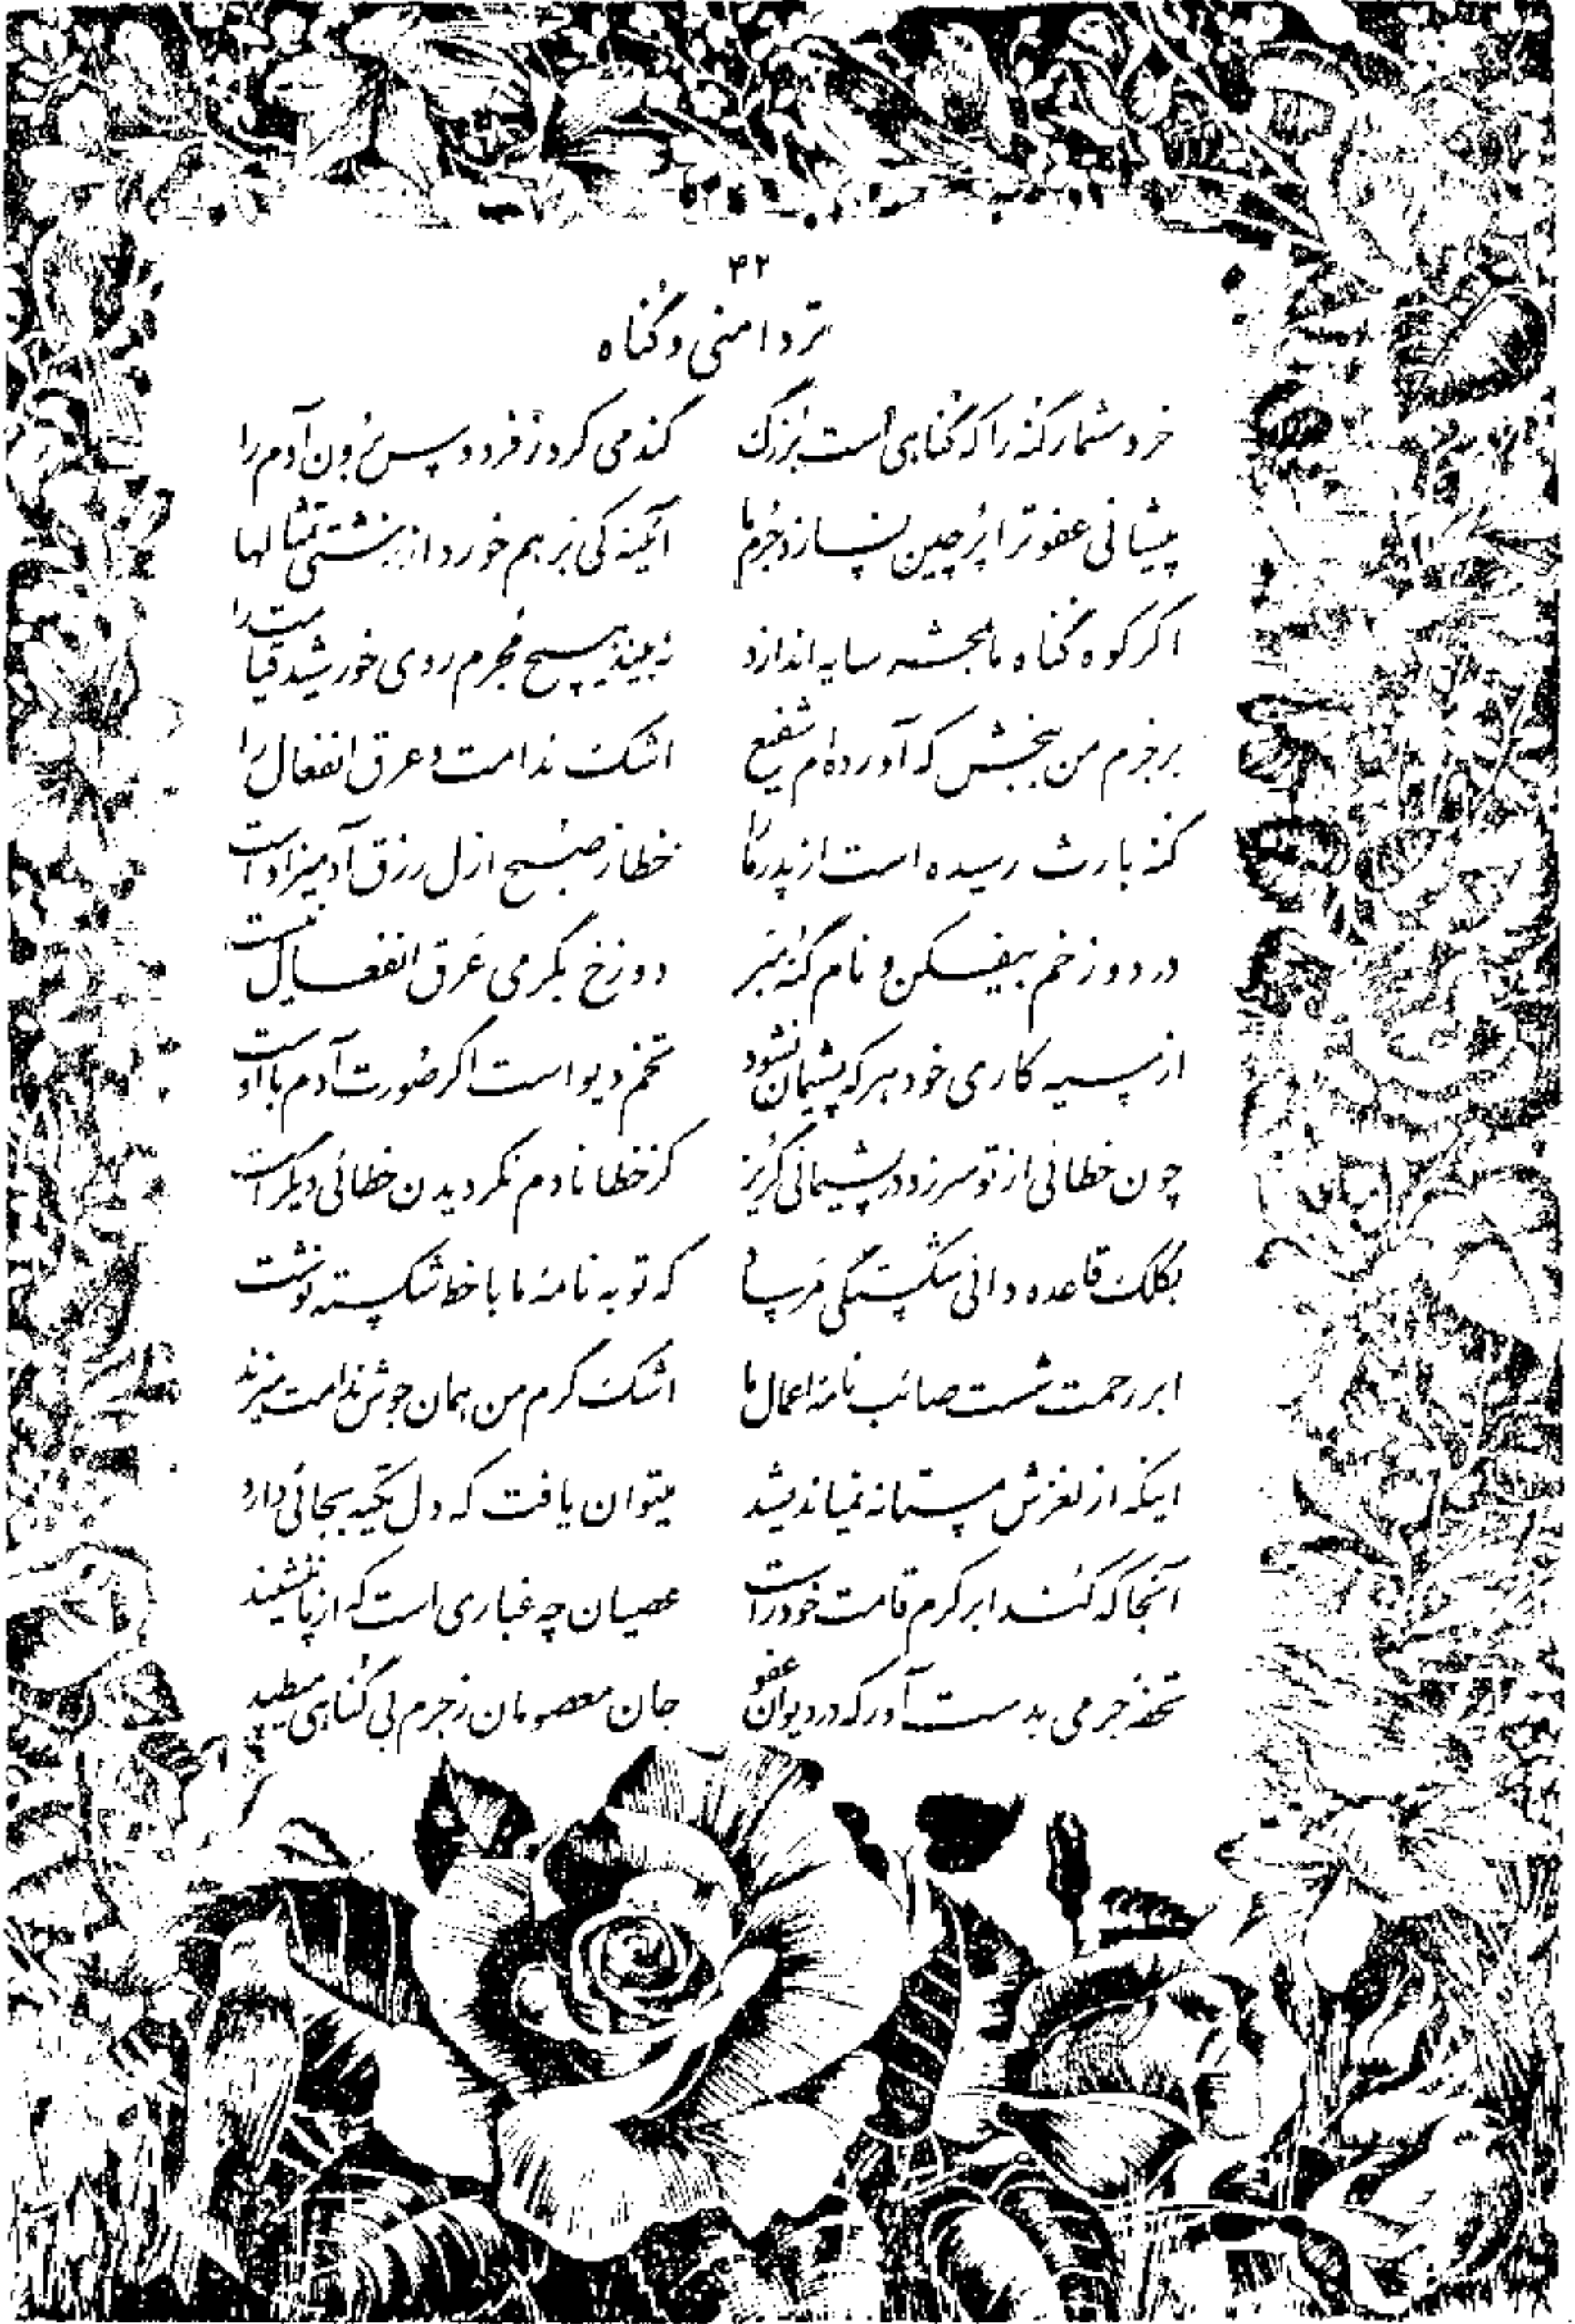 ۴۲
تردامنی و گناه
خرد مشمار گنه را که گناهی است بزرگ گندمی کرد ز فردوس برون آدم را
پیشانی عفو ترا پرچین نسازد جرم ما آئینه کی برهم خورد از زشتی تمثالها
اگر کوه گناه ما بمحشر سایه اندازد نبیند هیچ مجرم روی خورشید قیامت را
بر جرم من ببخش که آورده‌ام شفیع اشک ندامت و عرق انفعال را
گنه بارث رسیده است از پدر ما را خطا ز صبح ازل رزق آدمیزاد است
در دوزخم بیفکن و نام گنه مبر دوزخ بگرمی عرق انفعال نیست
از سیه کاری خود هر که پشیمان نشود تخم دیو است اگر صورت آدم با اوست
چون خطائی از تو سر زد در پشیمانی گریز کز خطا نادم نگردیدن خطائی دیگر است
بکلک قاعده دانی شکستگی مرساد که توبه نامهٔ ما با خط شکسته نوشت
ابر رحمت شست صائب نامه اعمال ما اشک گرم من همان جوش ندامت میزند
اینکه از لغزش مستانه نمیاندیشد میتوان یافت که دل تکیه بجائی دارد
آنجا که کند ابر کرم قامت خود راست عصیان چه غباری است که از پا ننشیند
تحفه جرمی بدست آور که در دیوان عفو جان معصومان ز جرم بی گناهی میطپد